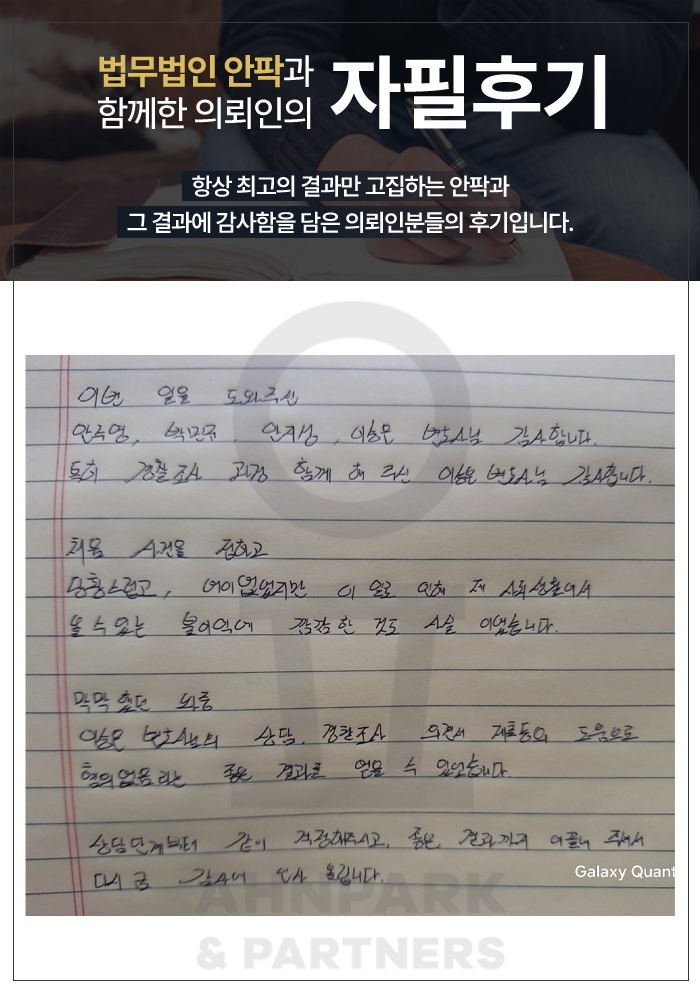 법무법인 안팍과
함께한 의뢰인의
자필후기
항상 최고의 결과만 고집하는 안팍과
그 결과에 감사함을 담은 의뢰인분들의 후기입니다.
이번 일을 도와주신
안주영, 박민규, 안지성, 이승은 변호사님 감사합니다.
특히 경찰조사 과정 함께 해 주신 이승은 변호사님 감사합니다.
처음 사건을 접하고
당황스럽고, 어이없었지만 이 일로 인해 제 사회생활에서
올 수 있는 불이익에 깜깜한 것도 사실 이었습니다.
막막했던 와중
이승은 변호사님의 상담, 경찰조사 의견서 제출등의 도움으로
혐의없음라는 좋은 결과를 얻을 수 있었습니다.
상담단계부터 같이 걱정해주시고, 좋은 결과까지 이끌어 주셔서
다시 금 감사에 인사 올립니다.
Galaxy Quant
AHNPARK
& PARTNERS